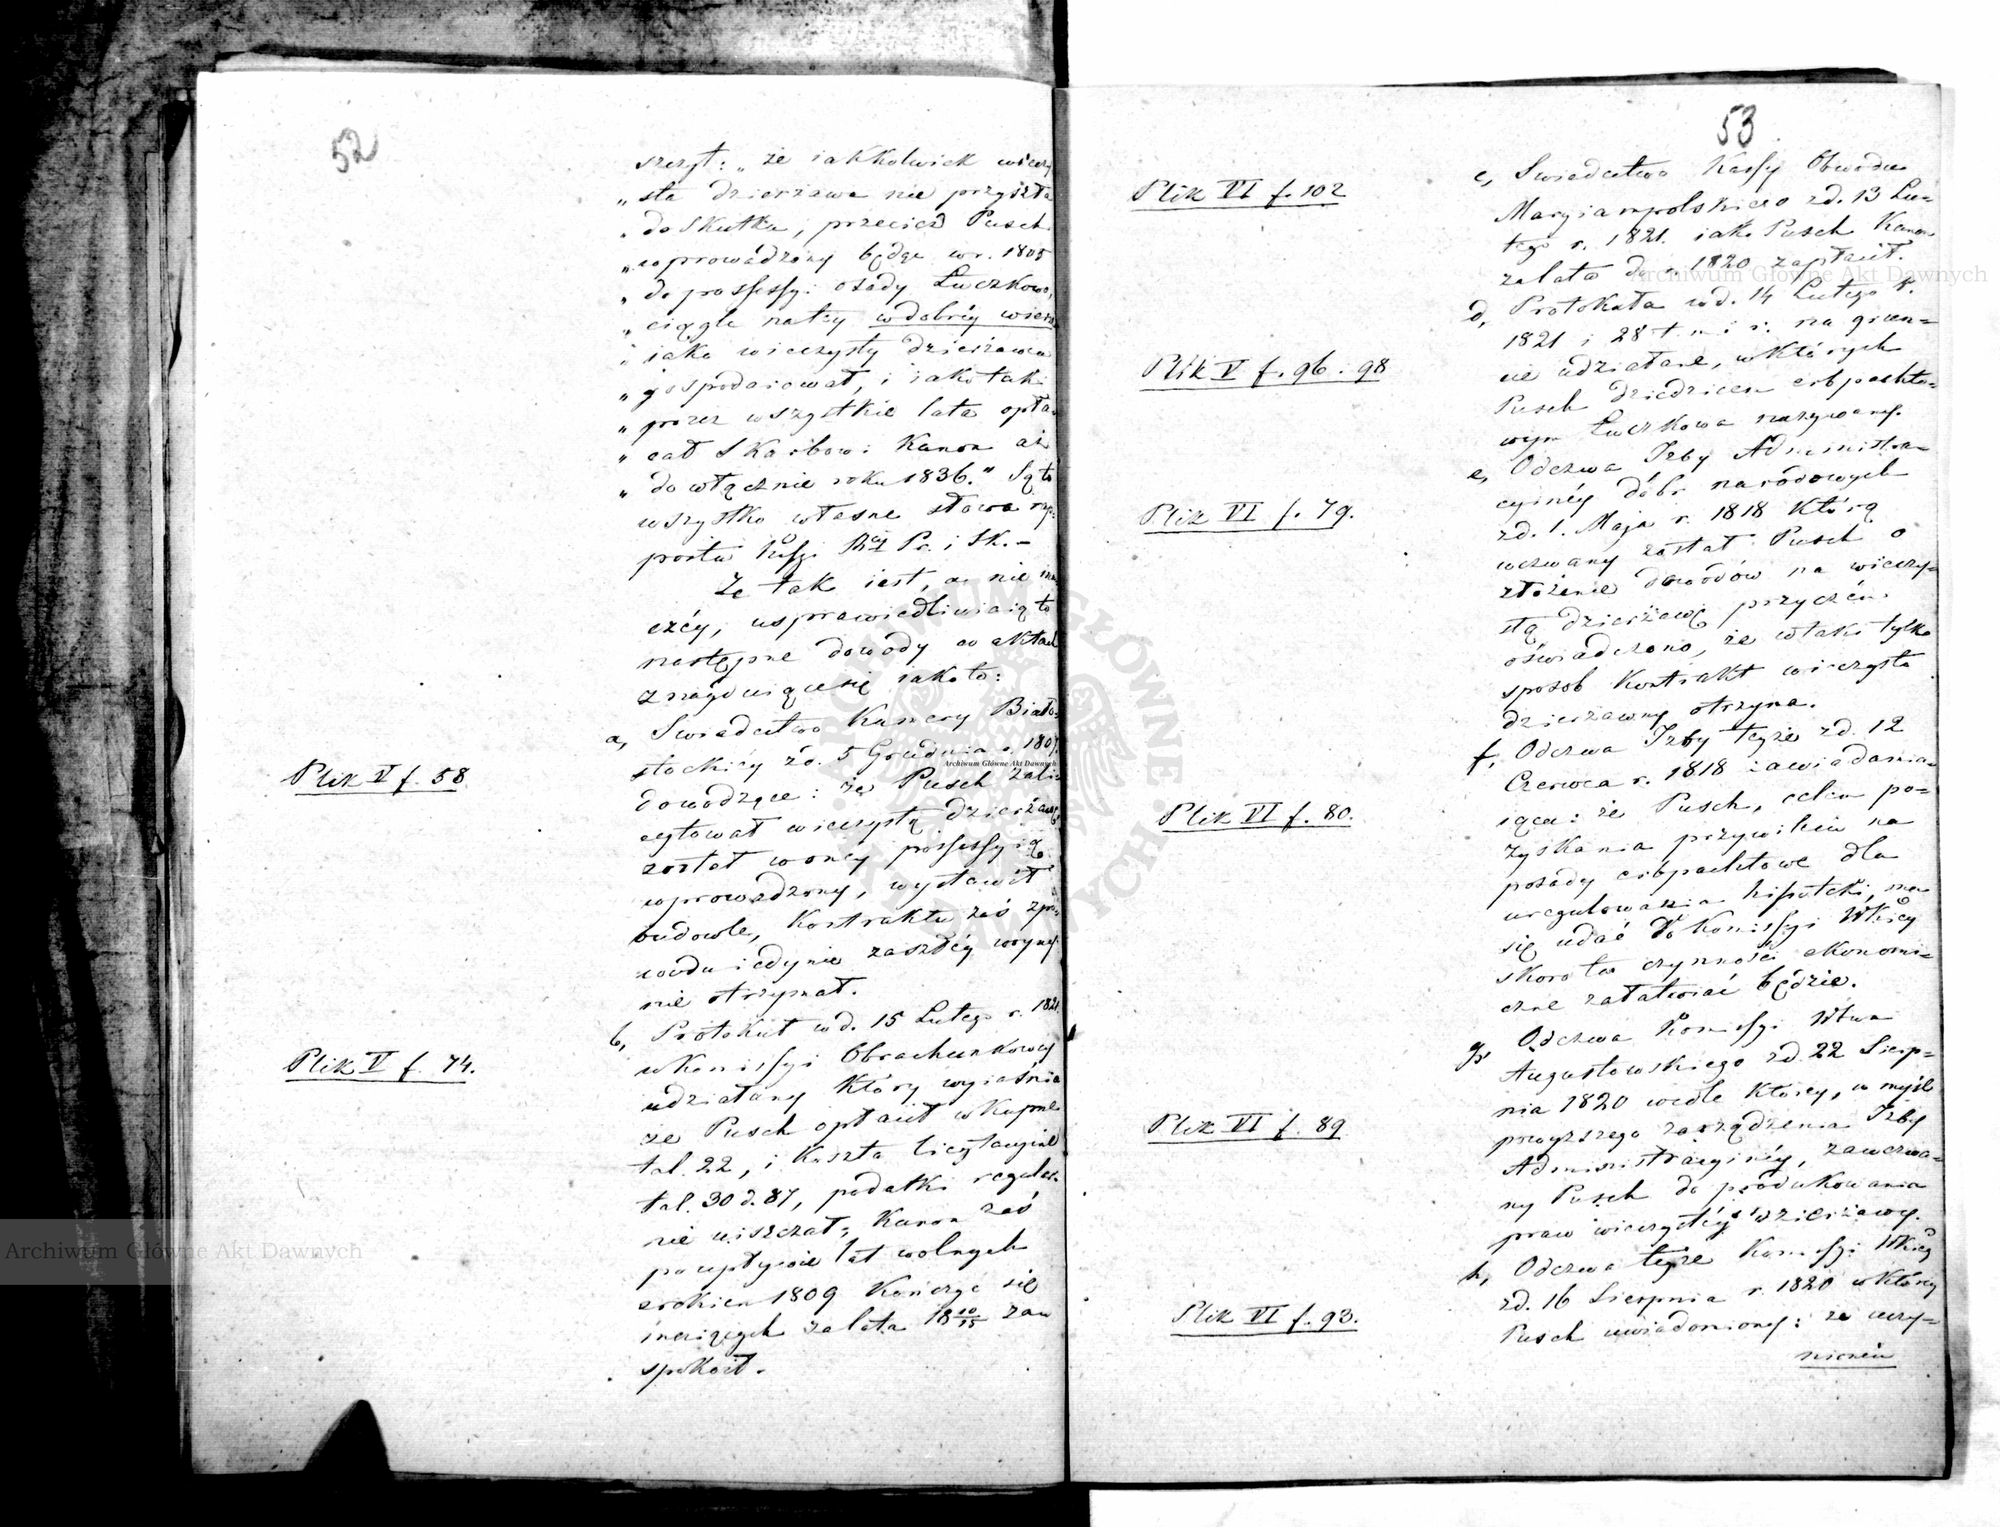 52
szczył: „że iakkolwiek wieczy
„sta dzierżawa nie przyszła
„do skutku, przecież Pusch
„wprowadzony będąc w r. 1805
„do possessyi osady Łuczkowo,
„ciągle na tey w dobréy wierze
„i iako wieczysty dzierżawca
„gospodarował, i iako taki
„przez wszystkie lata opła-
„cał Skarbowi Kanon aż
„do włącznie roku 1836.” Są to
wszystko własne słowa rap-
portu Kss: Rząd. Pr. i Sk.–
Że tak iest, a nie ina-
czéy, usprawiedliwiaią to
następne dowody w aktach
znayduiące się iako to:
Plik V f. 58
a, Swiadectwo Kamery Biało-
stockiéy z d. 5 Grudnia r. 1807.
dowodzące: że Pusch zali-
cytował wieczystą dzierżawę,
został w oney possessyią
wprowadzony, wystawił
budowle, Kontraktu zaś z po-
wodu iedynie zaszłéy woyny
nie otrzymał.
Plik V f. 74.
b, Protokuł w d. 15 Lutego r. 1821
w Komissyi Obrachunkowey
udziałany który wyiaśnia
że Pusch opłacił wkupne
tal. 22, i koszta licytacyine
tal. 30 d. 87, podatki regular-
nie uiszczał, Kanon zaś
po upływie lat wolnych
z rokiem 1809 kończyć się
maiących za lata 18 10/15 zaw
spokoił.
53
Plik VI f. 102
c, Swiadectwo Kassy Obwodu
Maryiampolskiego z d. 13 Lu-
tego r. 1821. iako Pusch Kanon
za lata do r. 1820 zapłacił.
Plik V f. 96. 98
d, Protokuła w d. 14 Lutego r.
1821 i 28 t. m. i r. na grun-
cie udziałane, w których
Pusch dziedzicem erbpachto-
wym Łuczkowa nazywany.
Plik VI f. 79.
e, Odezwa Izby Administra-
cyinéy dóbr narodowych
z d. 1. Maja r. 1818 którą
wezwany został Pusch o
złożenie dowodów na wieczy-
stą dzierżawę przyczém
oświadczono, że w taki tylko
sposob kontrakt wieczysto
dzierżawny otrzyma.
Plik VI f. 80.
f, Odezwa Izby teyże z d. 12
Czerwca r. 1818 zawiadamia-
iąca: że Pusch, celem po-
zyskania przywileiu na
posady erbpachtowe dla
uregulowania hipoteki, ma
się udać do Komissyi Wkiéy
skoro ta czynności ekonomi-
czne załatwiać będzie.
Plik VI f. 89
g, Odezwa Komissyi Wtwa
Augustowskiego z d. 22 Sierp-
nia 1820 wedle którey, w myśl
powyższego zarządzenia Izby
Administracyinéy, zawezwa-
ny Pusch do produkowania
praw wieczystéy dzierżawy.
Plik VI f. 93.
h, Odezwa teyże Komissyi Wkiéy
z d. 16 Sierpnia r. 1820 w którey
Pusch uwiadomiony: że uczy-
nioném
Archiwum Główne Akt Dawnych
Archiwum Główne Akt Dawnych
Archiwum Główne Akt Dawnych
ARCHIWUM GŁÓWNE AKT DAWNYCH